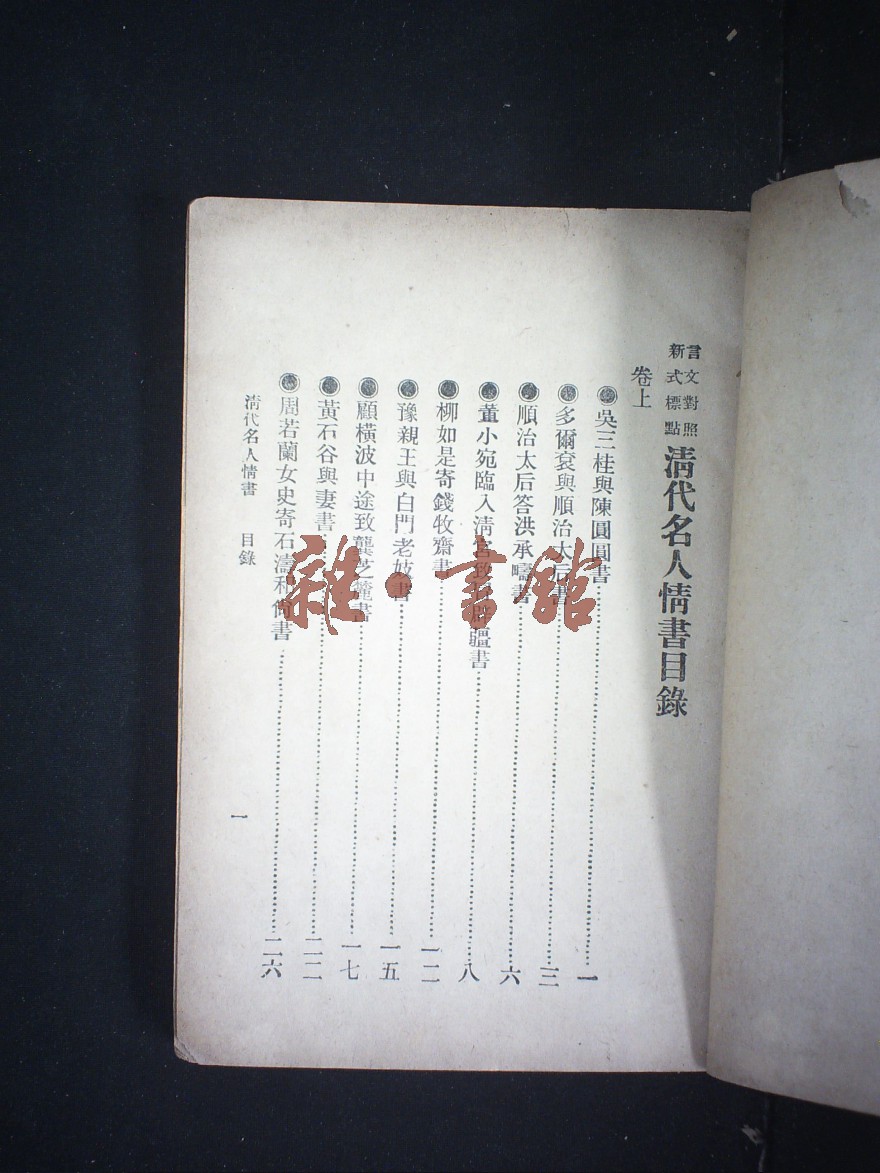 言文對照
新式標點
清代名人情書目錄
卷上
吳三桂與陳圓圓書 一
多爾袞與順治太后書 三
順治太后答洪承疇書 六
董小宛臨入清宮致冒辟疆書 八
柳如是寄錢牧齋書 一二
豫親王與白門老妓書 一五
顧橫波中途致龔芝麓書 一七
黃石谷與妻書 二二
周若蘭女史寄石濤和尚書 二六
清代名人情書 目錄
一
雜·書館